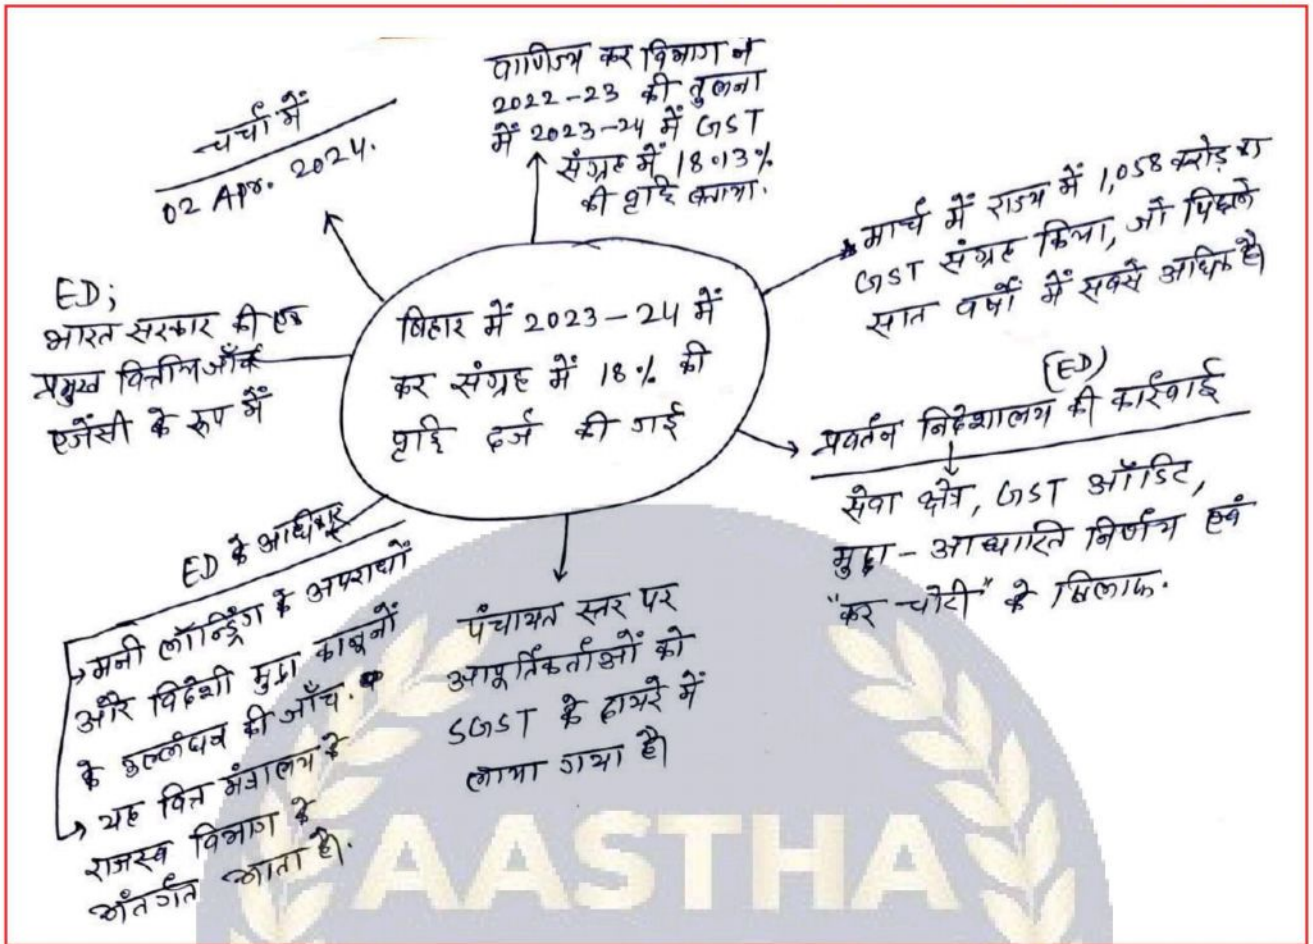 चर्चा में
02 Apr. 2024.
वाणिज्य कर विभाग ने
2022-23 की तुलना
में 2023-24 में GST
संग्रह में 18.13%
की वृद्धि बताया.
मार्च में राज्य में 1,058 करोड़ का
GST संग्रह किया, जो पिछले
सात वर्षों में सबसे अधिक है।
ED;
भारत सरकार की एक
प्रमुख वित्तीय जाँच
एजेंसी के रूप में
बिहार में 2023-24 में
कर संग्रह में 18% की
वृद्धि दर्ज की गई
(ED)
प्रवर्तन निदेशालय की कार्रवाई
सेवा क्षेत्र, GST ऑडिट,
मुद्दा - आधारित निर्णय एवं
"कर चोरी" के खिलाफ.
ED के अधिकार
मनी लॉन्ड्रिंग के अपराधों
और विदेशी मुद्रा कानूनों
के उल्लंघन की जाँच.
यह वित्त मंत्रालय के
राजस्व विभाग के
अंतर्गत आता है।
पंचायत स्तर पर
आपूर्तिकर्ताओं को
SGST के दायरे में
लाया गया है।
AASTHA